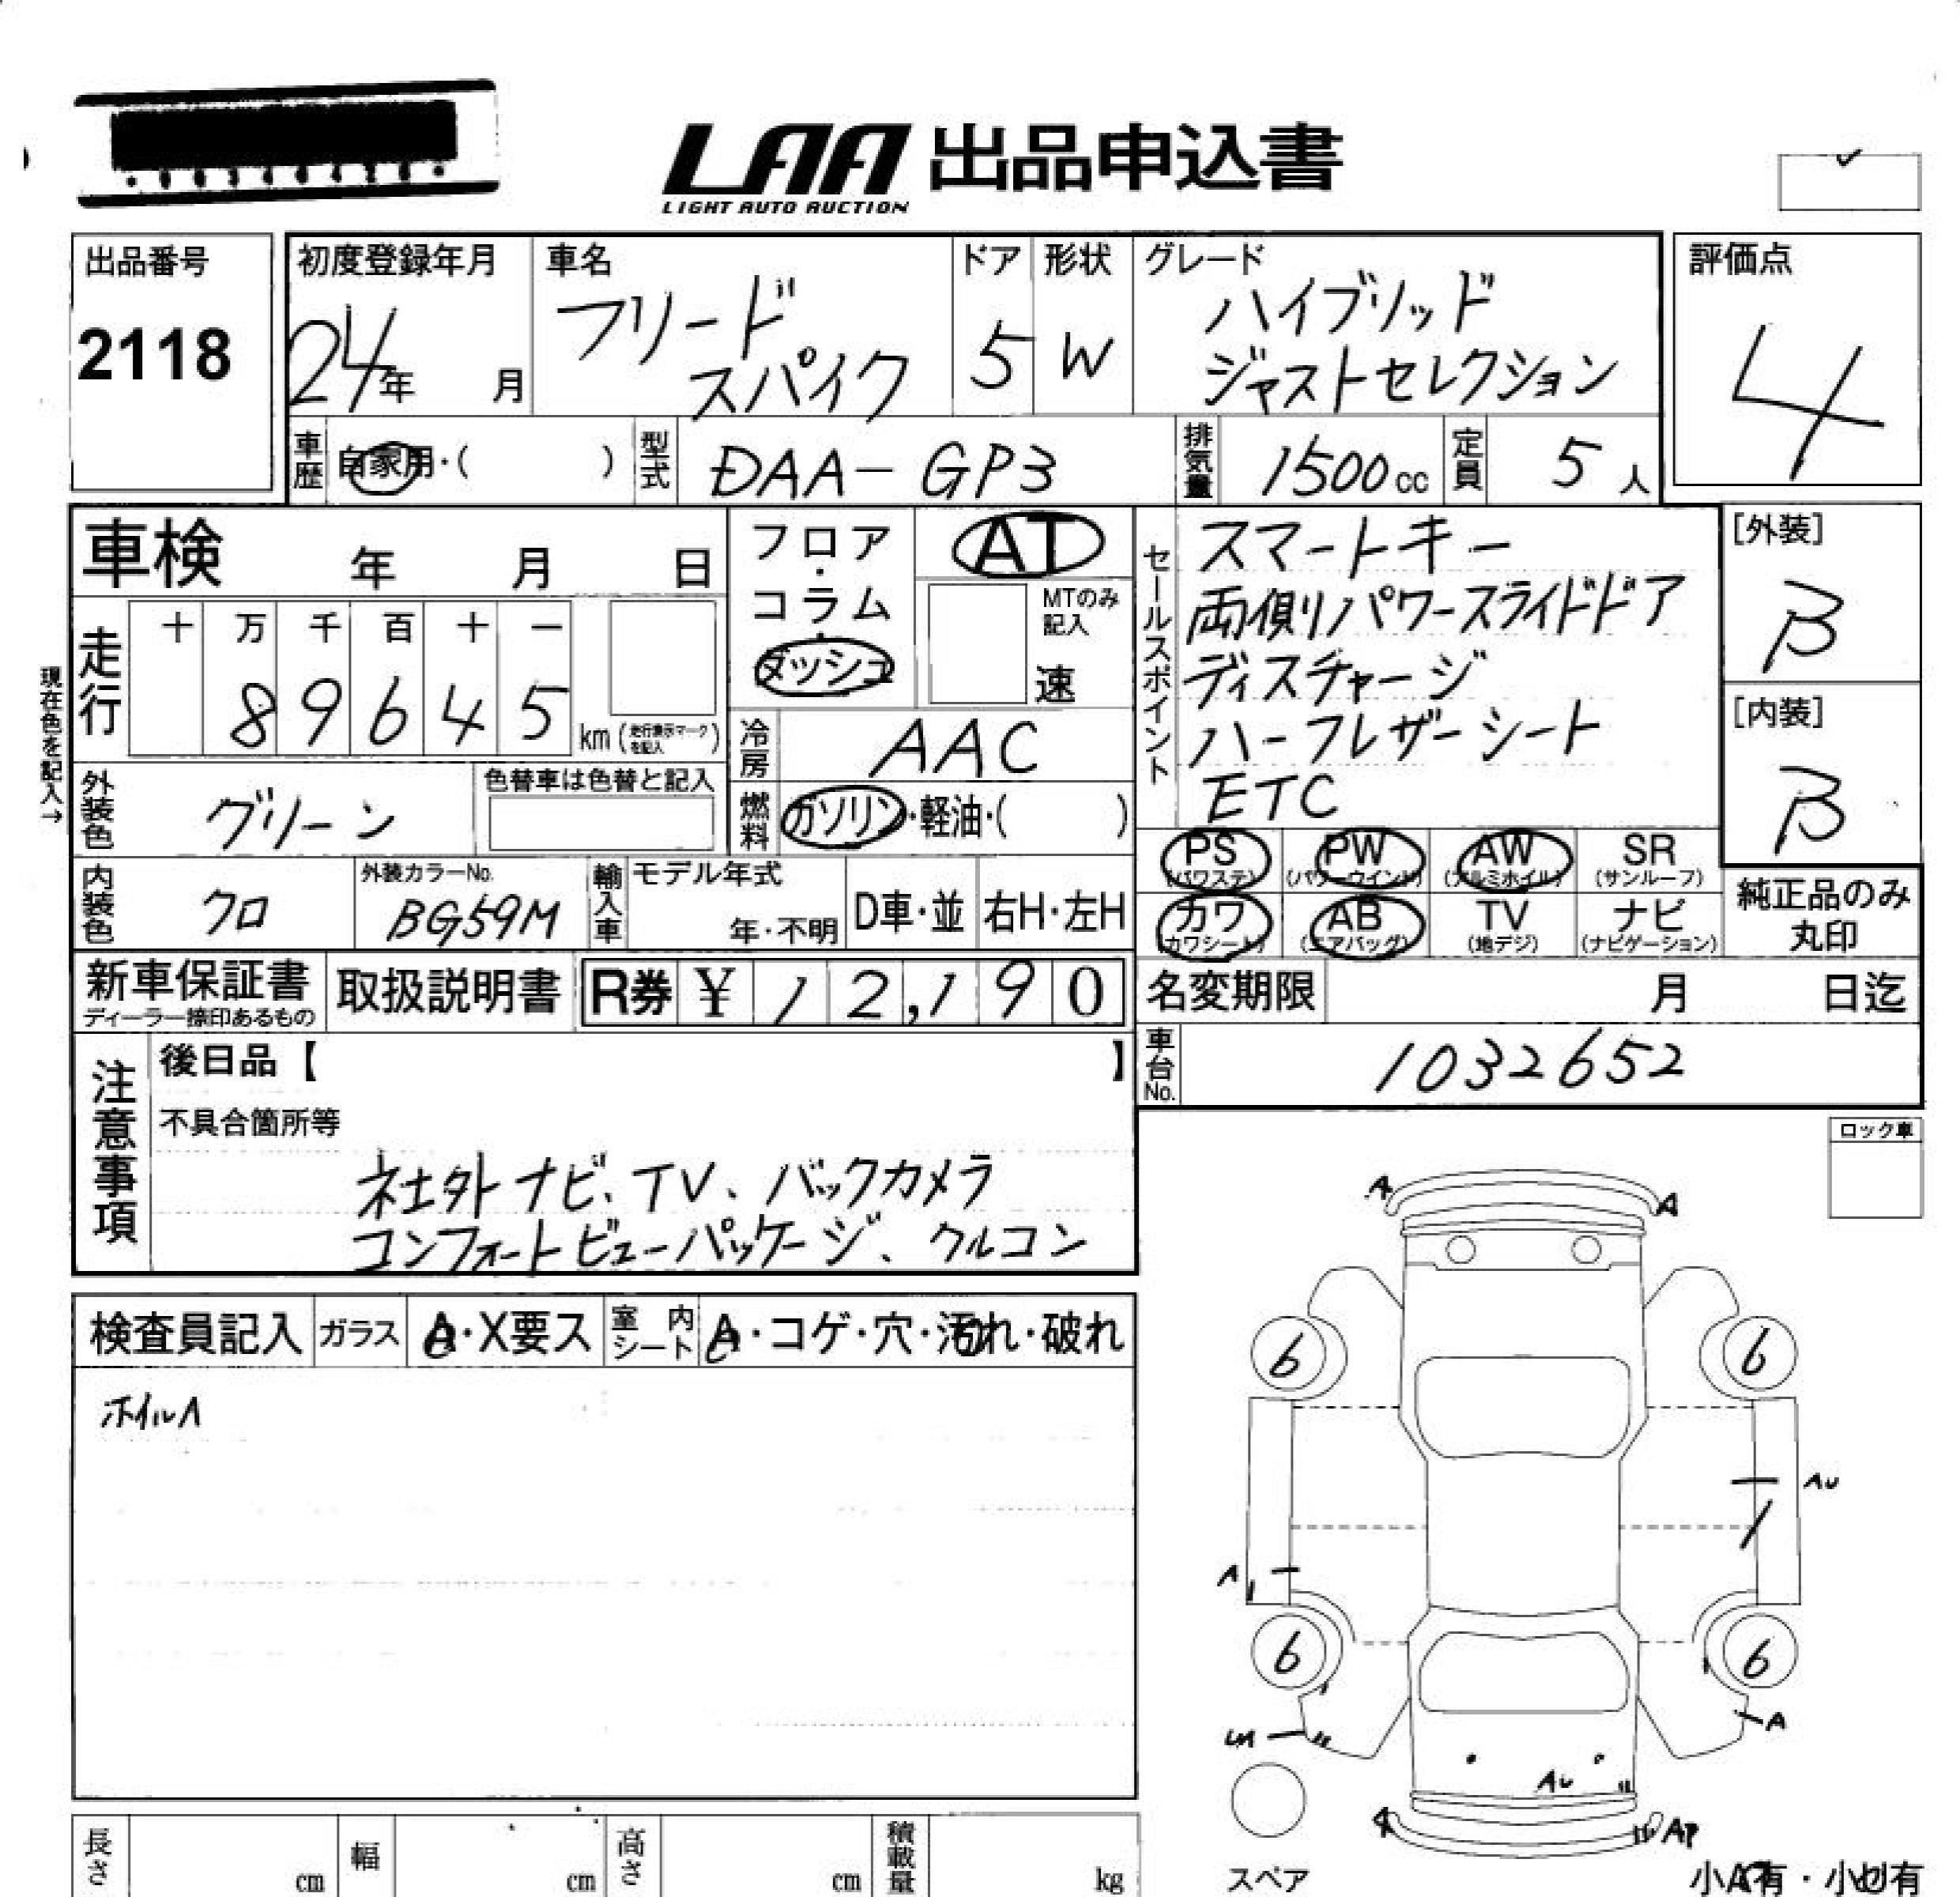 LAA 出品申込書
LIGHT AUTO AUCTION
出品番号
2118
初度登録年月
24年 月
車名
フリード
スパイク
ドア
5
形状
W
グレード
ハイブリッド
ジャストセレクション
評価点
4
車歴 自家用・( )
型式 DAA-GP3
排気量 1500cc
定員 5人
車検 年 月 日
走行
十 万 千 百 十 一
8 9 6 4 5 km(走行表示マークを記入)
現在色を記入→
フロア・
コラム・
ダッシュ
AT
MTのみ
記入
速
冷房 AAC
燃料 ガソリン・軽油・( )
外装色 グリーン
色替車は色替と記入
内装色 クロ
外装カラーNo.
BG59M
輸入車
モデル年式
年・不明
D車・並
右H・左H
セールスポイント
スマートキー
両側パワースライドドア
ディスチャージ
ハーフレザーシート
ETC
[外装]
B
[内装]
B
PS
(パワステ)
PW
(パワーウインド)
AW
(アルミホイル)
SR
(サンルーフ)
カワ
(カワシート)
AB
(エアバッグ)
TV
(地デジ)
ナビ
(ナビゲーション)
純正品のみ
丸印
新車保証書
ディーラー捺印あるもの
取扱説明書
R券 ¥ 12,190
名変期限 月 日迄
車台No. 1032652
注意事項
後日品【 】
不具合箇所等
社外ナビ、TV、バックカメラ
コンフォートビューパッケージ、クルコン
ロック車
検査員記入
ガラス
A・X要ス
室内シート
A・コゲ・穴・汚れ・破れ
ホイルA
A A
6 6
AU
A
6 6
A
AU
A AP
スペア
長さ cm
幅 cm
高さ cm
積載量 kg
小A有・小U有